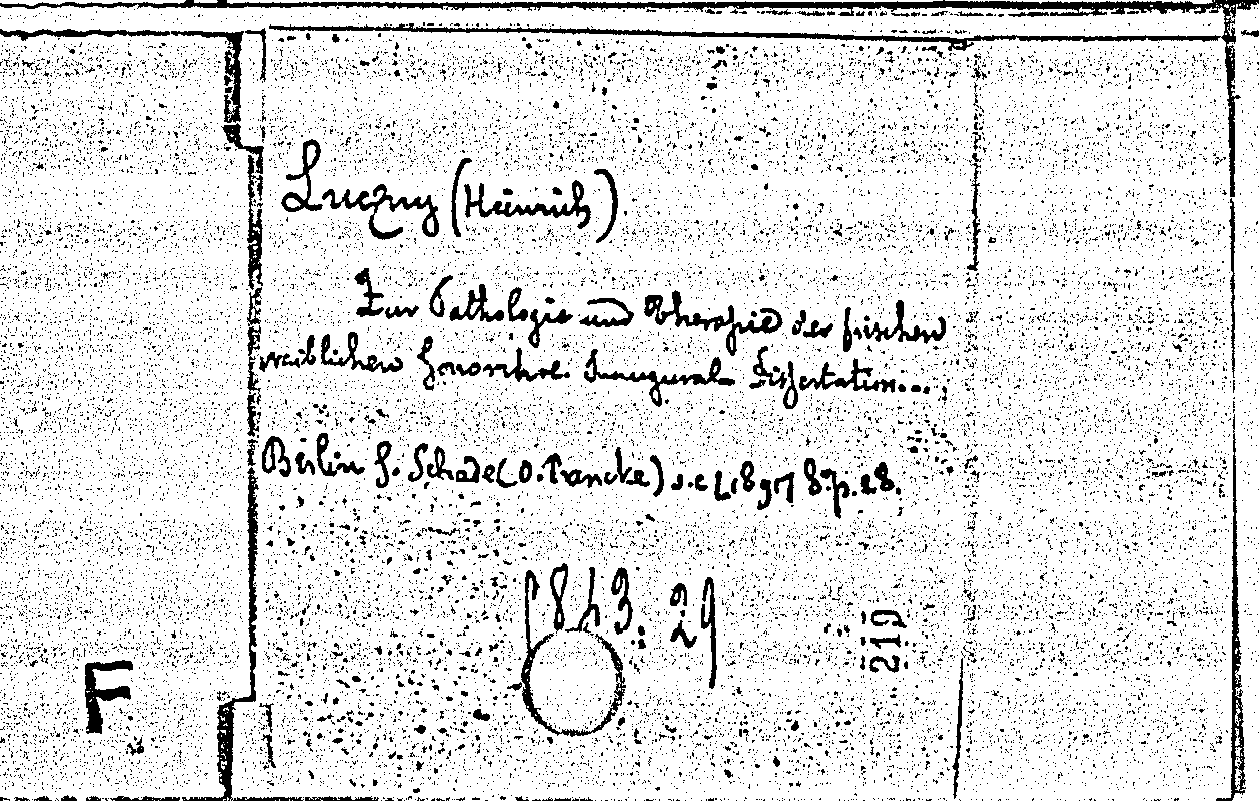 Luczny (Heinrich).
Zur Pathologie und Therapie der frischen
weiblichen Gonorrhoe. Inaugural-Dissertation....
Berlin G. Schade (O. Francke) s.c [1897 8° p. 28.
1843. 29
219
F